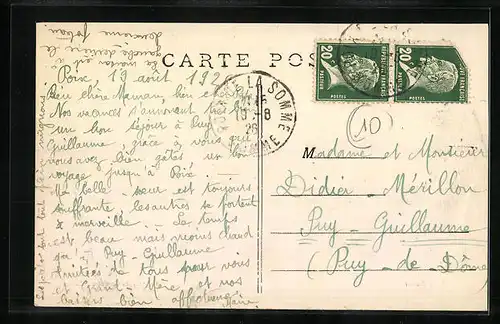 CARTE POS
Poix, 19 août 192
Bien chère Maman, bien
Nos vacances s'annoncent
un bon séjour à Puy
Guillaume, grâce à vous qui
nous avez bien gâtés un bon
voyage jusqu'à Poix
Ma belle-sœur est toujours
souffrante les autres se portent
à merveille. Le temps
est beau mais moins chaud
qu'à Puy-Guillaume
Amitiés de tous pour vous
et Grand-Mère et nos
baisers bien affectueux
la maison est à
gauche derrière le
LA SOMME
19-8
26
SOMME
20c
POSTES
20c
POSTES
10
Madame et Monsieur
Didier-Mérillon
Puy-Guillaume
(Puy-de-Dôme)